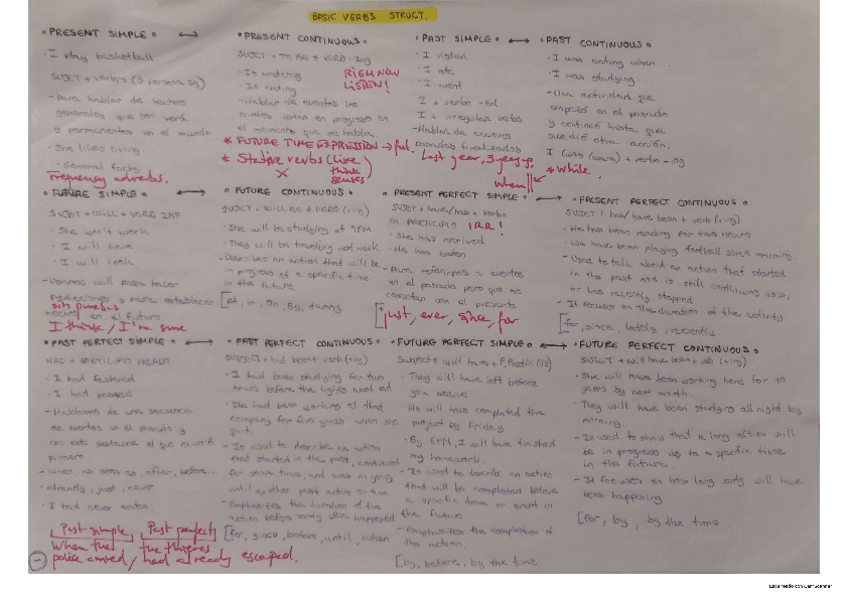 BASIC VERBS STRUCT.
• PRESENT SIMPLE • ↔
• I play basketball
SUJET + verb/s (3 persona sg)
- Para hablar de hechos
generales que son verd.
y permanentes en el mundo
• She likes living
- General facts
Frequency adverbs.
• PRESENT CONTINUOUS •
SUJET + TO BE + VERB-ing
RIGHT NOW
LISTEN!
- Hablar de eventos
cuales están en progreso en
el momento que se habla.
* FUTURE TIME EXPRESSION → fut.
* Stative verbs (like
think
senses)
X
• PAST SIMPLE • ↔
• I visited
• I ate
• I went
I + verbo -ed
I + irregular verbs
- Hablar de acciones
pasadas finalizadas
Last year, 3 years
when
• PAST CONTINUOUS •
• I was eating when..
• I was studying.
- Una actividad que
empezó en el pasado
y continuó hasta que
sucedió otra acción.
I (was/were) + verbo -ing
* while.
• FUTURE SIMPLE • ↔
SUJET + WILL + VERB INF
• She won't work
• I will have
• I will look
predicciones y para establecer
sin pruebas
hechos en el futuro
I think / I'm sure
• FUTURE CONTINUOUS •
SUJECT + WILL BE + VERB (+ing)
• She will be studying at 9PM
• They will be traveling next week
- Describes an action that will be
in progress at a specific time
in the future.
[At, in, On, By, during
PRESENT PERFECT SIMPLE • ↔
SUJET + have/has + verbo
en PARTICIPIO IRR!
• She has arrived
• He has eaten
- Para referirnos a eventos
en el pasado pero que se
conectan con el presente
[just, ever, since, for
• PRESENT PERFECT CONTINUOUS •
SUJECT + has/have been + verb (+ing)
• He has been reading for two hours
• We have been playing football since morning.
- Used to talk about an action that started
in the past and is still continuing now,
or has recently stopped
- It focuses on the duration of the activity
[for, since, lately, recently
• PAST PERFECT SIMPLE • ↔
HAD + PARTICIPIO PASADO
• I had finished
• I had passed
- Hablamos de una secuencia
de eventos en el pasado y
primero.
- when, as soon as, after, before..
- already, just, never
• I had never eaten.
Past simple, Past perfect
When the the thieves
police arrived / had already escaped.
• PAST PERFECT CONTINUOUS
SUBJECT + had been + verb (+ing)
• I had been studying for two
hours before the lights went out
• She had been working at that
company for five years when she
quit.
- Is used to describe an action
that started in the past, continued
for some time, and was on going
until another past action or time
- Emphasizes the duration of the
action before something else happened
[for, since, before, until, when
• FUTURE PERFECT SIMPLE • ↔
Subject + will have + P. Participle (V3)
• They will have left before
you arrive
• He will have completed the
project by Friday.
• By 6PM, I will have finished
my homework.
- Is used to describe an action
that will be completed before
a specific time or event in
the future.
- Emphasizes the completion of
the action.
[by, before, by the time
• FUTURE PERFECT CONTINUOUS •
SUJECT + will have been + verb (+ing)
• She will have been working here for 10
years by next month.
• They will have been studying all night by
morning
- Is used to stress that a long action will
be in progress up to a specific time
in the future.
- It focuses on how long something will have
been happening
[for, by, by the time
Escaneado con CamScanner